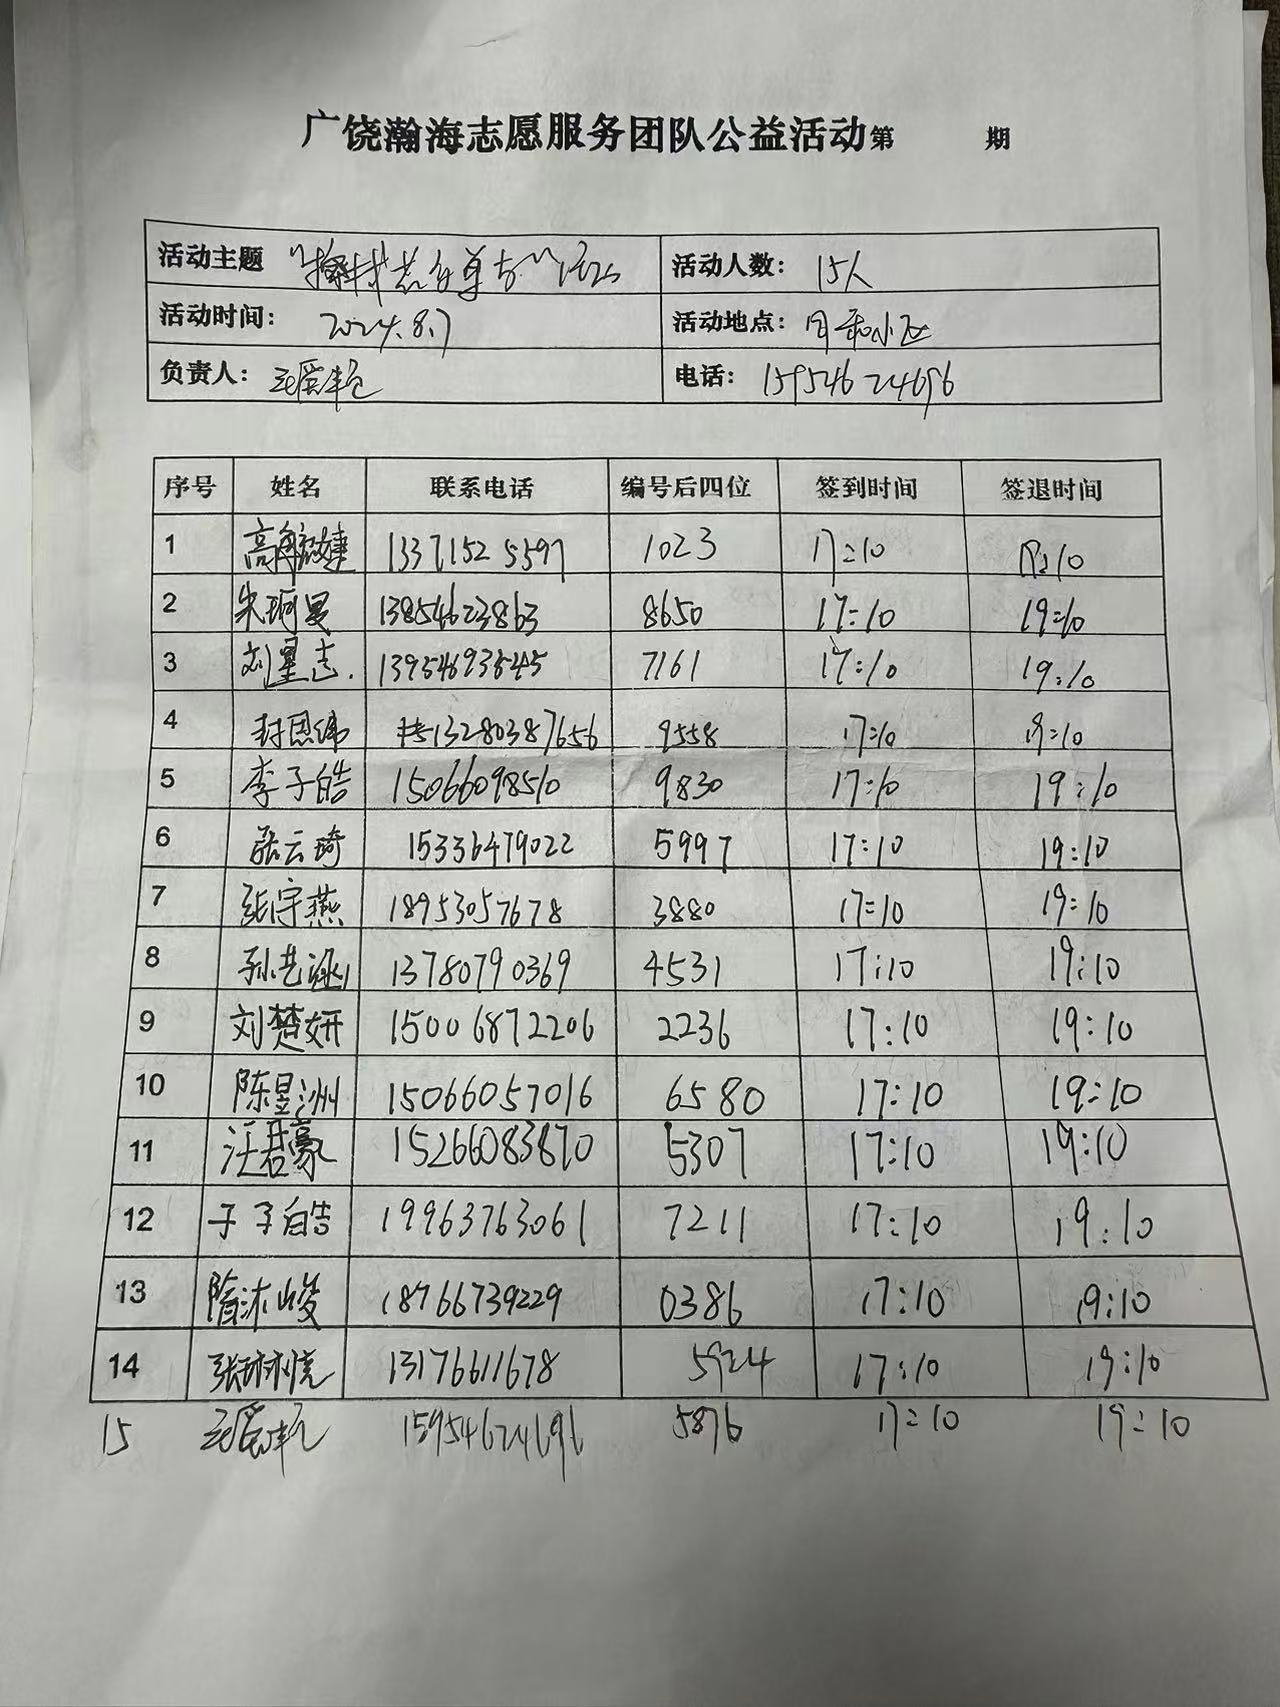 广饶瀚海志愿服务团队公益活动第 期
活动主题 活动人数: 15人
活动时间: 2024.8.7 活动地点: 小区
负责人: 电话: 15954624696
序号 姓名 联系电话 编号后四位 签到时间 签退时间
1 高 13371525597 1023 17:10 19:10
2 朱珂旻 13854623863 8650 17:10 19:10
3 刘星志. 13954693545 7161 17:10 19:10
4 封恩纬 13280387656 9558 17:10 19:10
5 李子皓 15066098510 9830 17:10 19:10
6 张云琦 15336479022 5997 17:10 19:10
7 张宇燕 18953057678 3880 17:10 19:10
8 孙艺涵 13780790369 4531 17:10 19:10
9 刘楚妍 15006872206 2236 17:10 19:10
10 陈昱洲 15066057016 6580 17:10 19:10
11 汪君豪 15266083870 5307 17:10 19:10
12 于子皓 19963763061 7211 17:10 19:10
13 隋沐峻 18766739229 0386 17:10 19:10
14 张 13176611678 5924 17:10 19:10
15 15954624696 5876 17:10 19:10